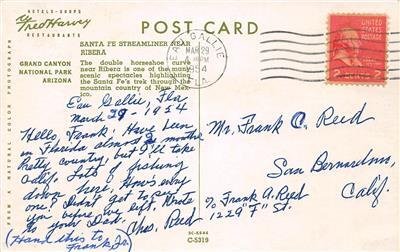 HOTELS - SHOPS
Fred Harvey
RESTAURANTS
POST-CARD
GRAND CANYON
NATIONAL PARK
ARIZONA
SANTA FE STREAMLINER NEAR
RIBERA
The double horseshoe curve
near Ribera is one of the many
scenic spectacles highlighting
the Santa Fe's trek through the
mountain country of New Mex-
ico.
EAU GALLIE
MAR 29
4 PM
1954
FLA.
UNITED STATES POSTAGE
2 CENTS 2
FROM A NATURAL COLOR PHOTOGRAPH
Eau Gallie, Fla
March 29 - 1954
Hello, Frank; Have been
in Florida almost 2 months
Pretty country but I'll take
Calif. Lots of fishing
down here, How's every
one! Didn't get to see
you before we left. Wrote
to your Dad. Chas. Reed
(Hand this to
Frank Jr.)
Mr. Frank C. Reed
San Bernardino,
Calif.
c/o Frank A. Reed
1229 "F" St.
SC-K544
C-5319